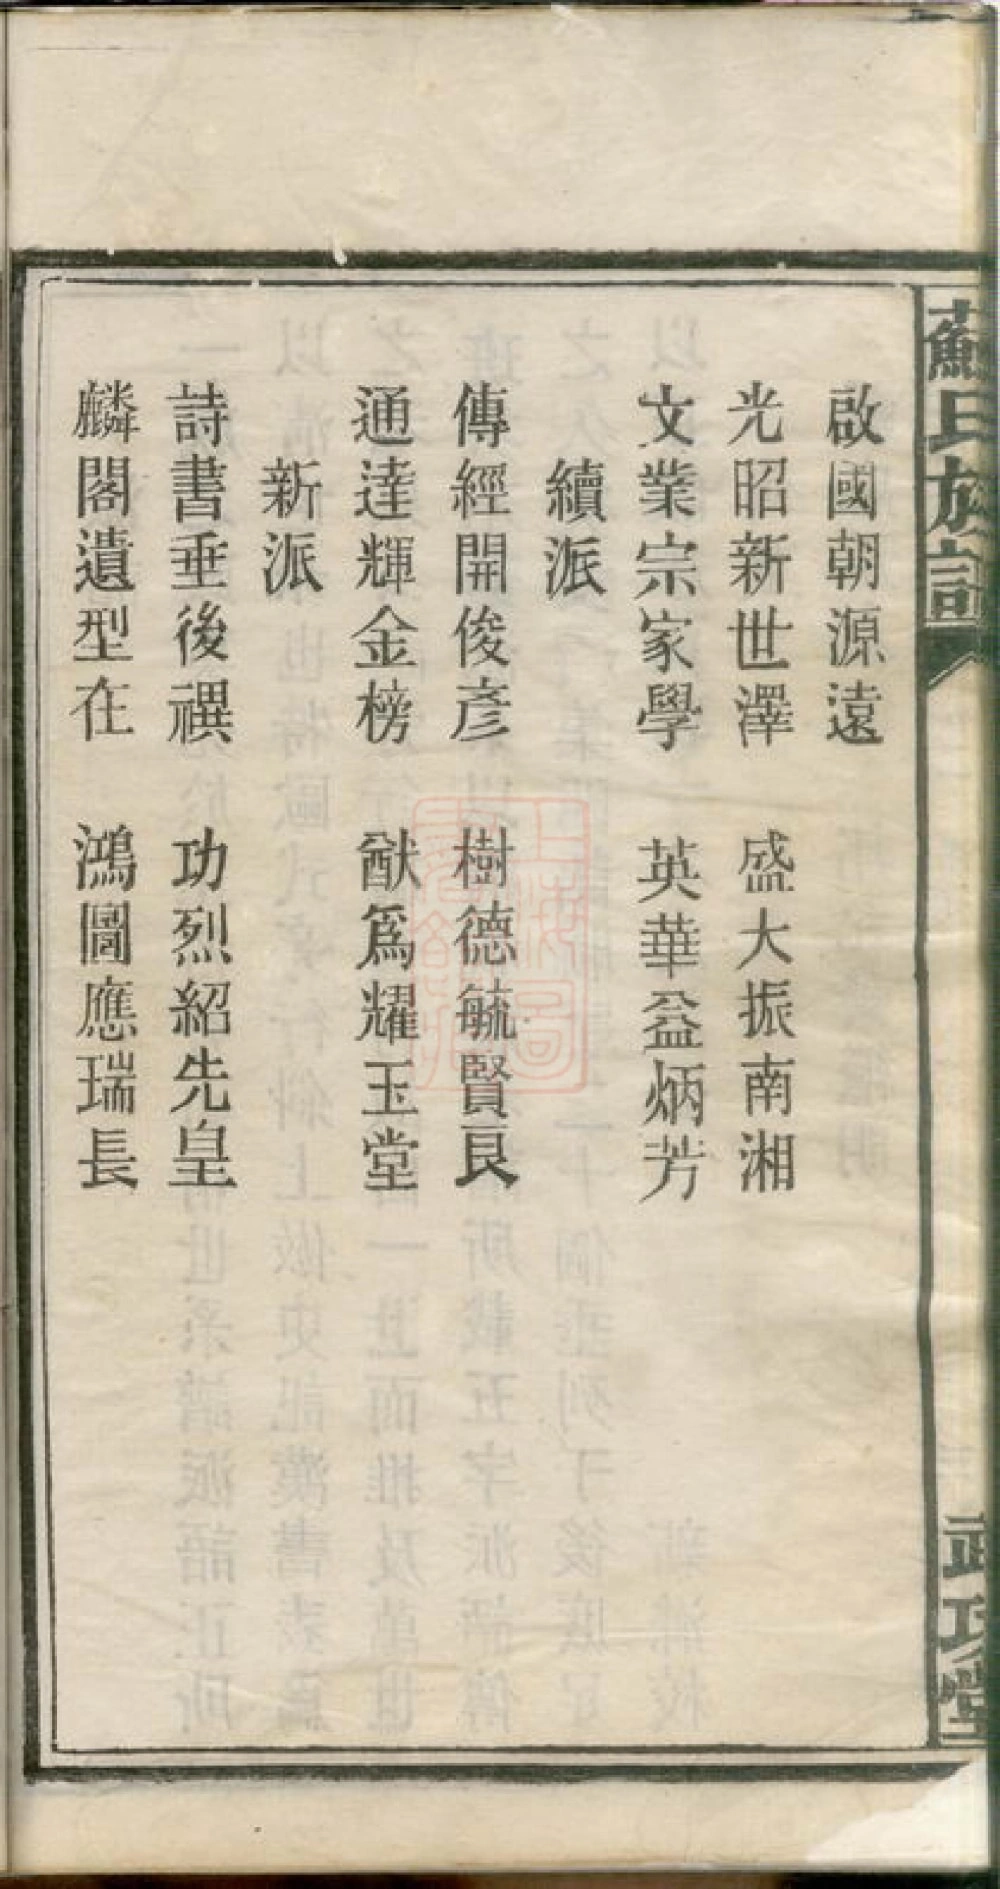 蘇氏族譜
啟國朝源遠
光昭新世澤　盛大振南湘
文業宗家學　英華益炳芳
續派
傳經開俊彥　樹德毓賢良
通達輝金榜　猷為耀玉堂
新派
詩書垂後禩　功烈紹先皇
麟閣遺型在　鴻圖應瑞長
武功堂